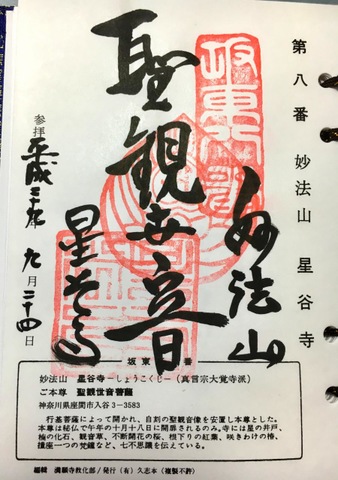 第八番 妙法山 星谷寺
妙法山
聖観世音
星谷寺
参拝 平成二十九年 九月二十四日
坂東 番
妙法山 星谷寺－しょうこくじ－（真言宗大覚寺派）
ご本尊 聖観世音菩薩
神奈川県座間市入谷3－3583
行基菩薩によって開かれ、自刻の聖観音像を安置し本尊とした。
本尊は秘仏で午年の十月十八日に開扉されるのみ。寺には星の井戸、
楠の化石、観音草、不断開花の桜、根下りの紅葉、咲きわけの椿、
撞座一つの梵鐘など、七不思議を伝えている。
編輯 満願寺教化部／発行（有）久志本（複製不許）